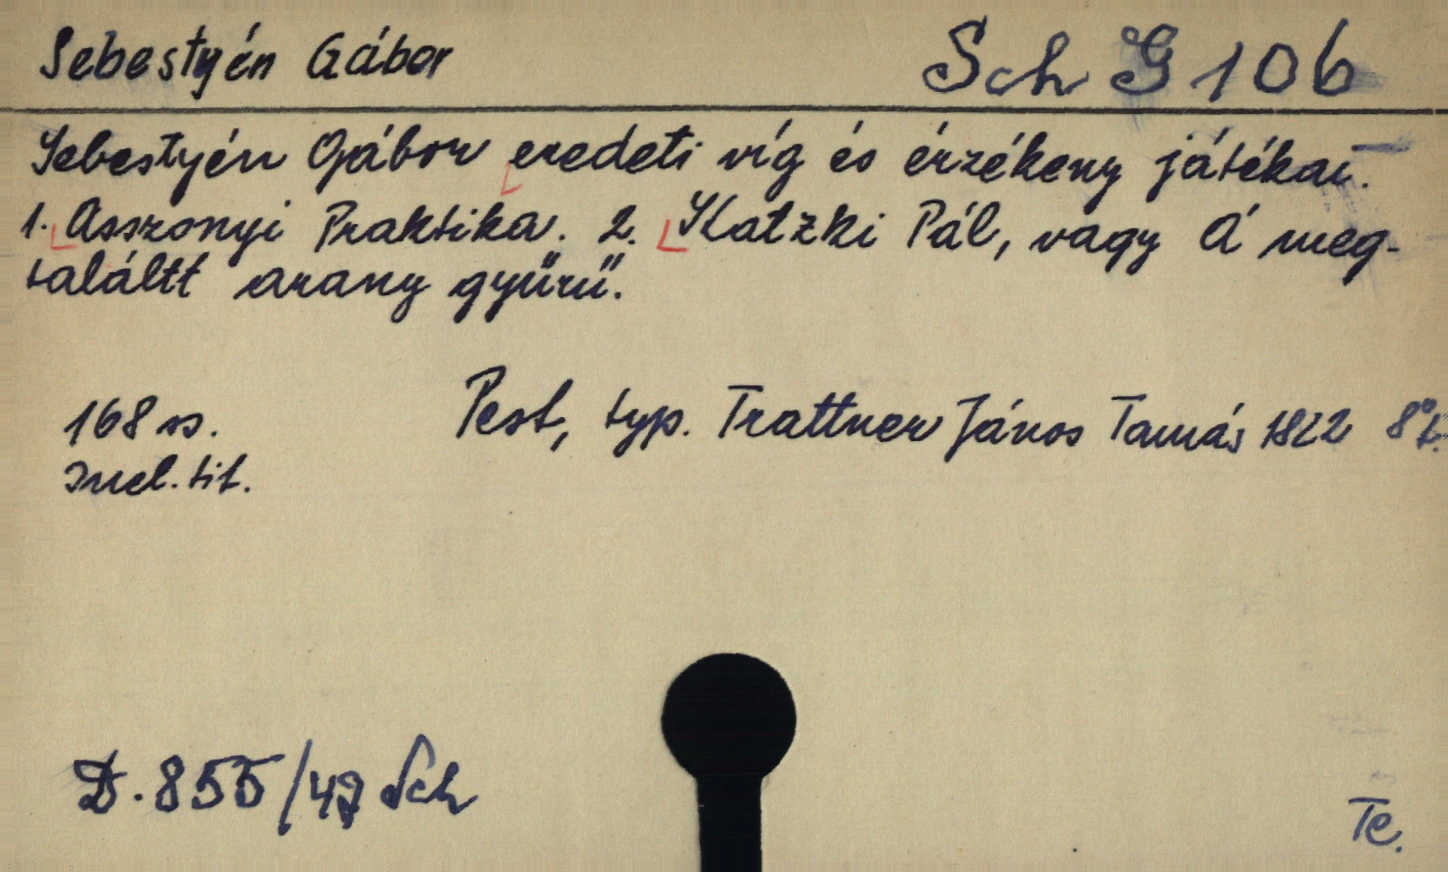 Sebestyén Gábor Sch G 106
Sebestyén Gábor eredeti víg és érzékeny játékai.
1. Asszonyi Praktika. 2. Klatzki Pál, vagy Á meg-
találtt arany gyűrű.
168 ss. Pest, typ. Trattner János Tamás 1822 8°
Incl. tit.
D. 855/49 Sch
Te.